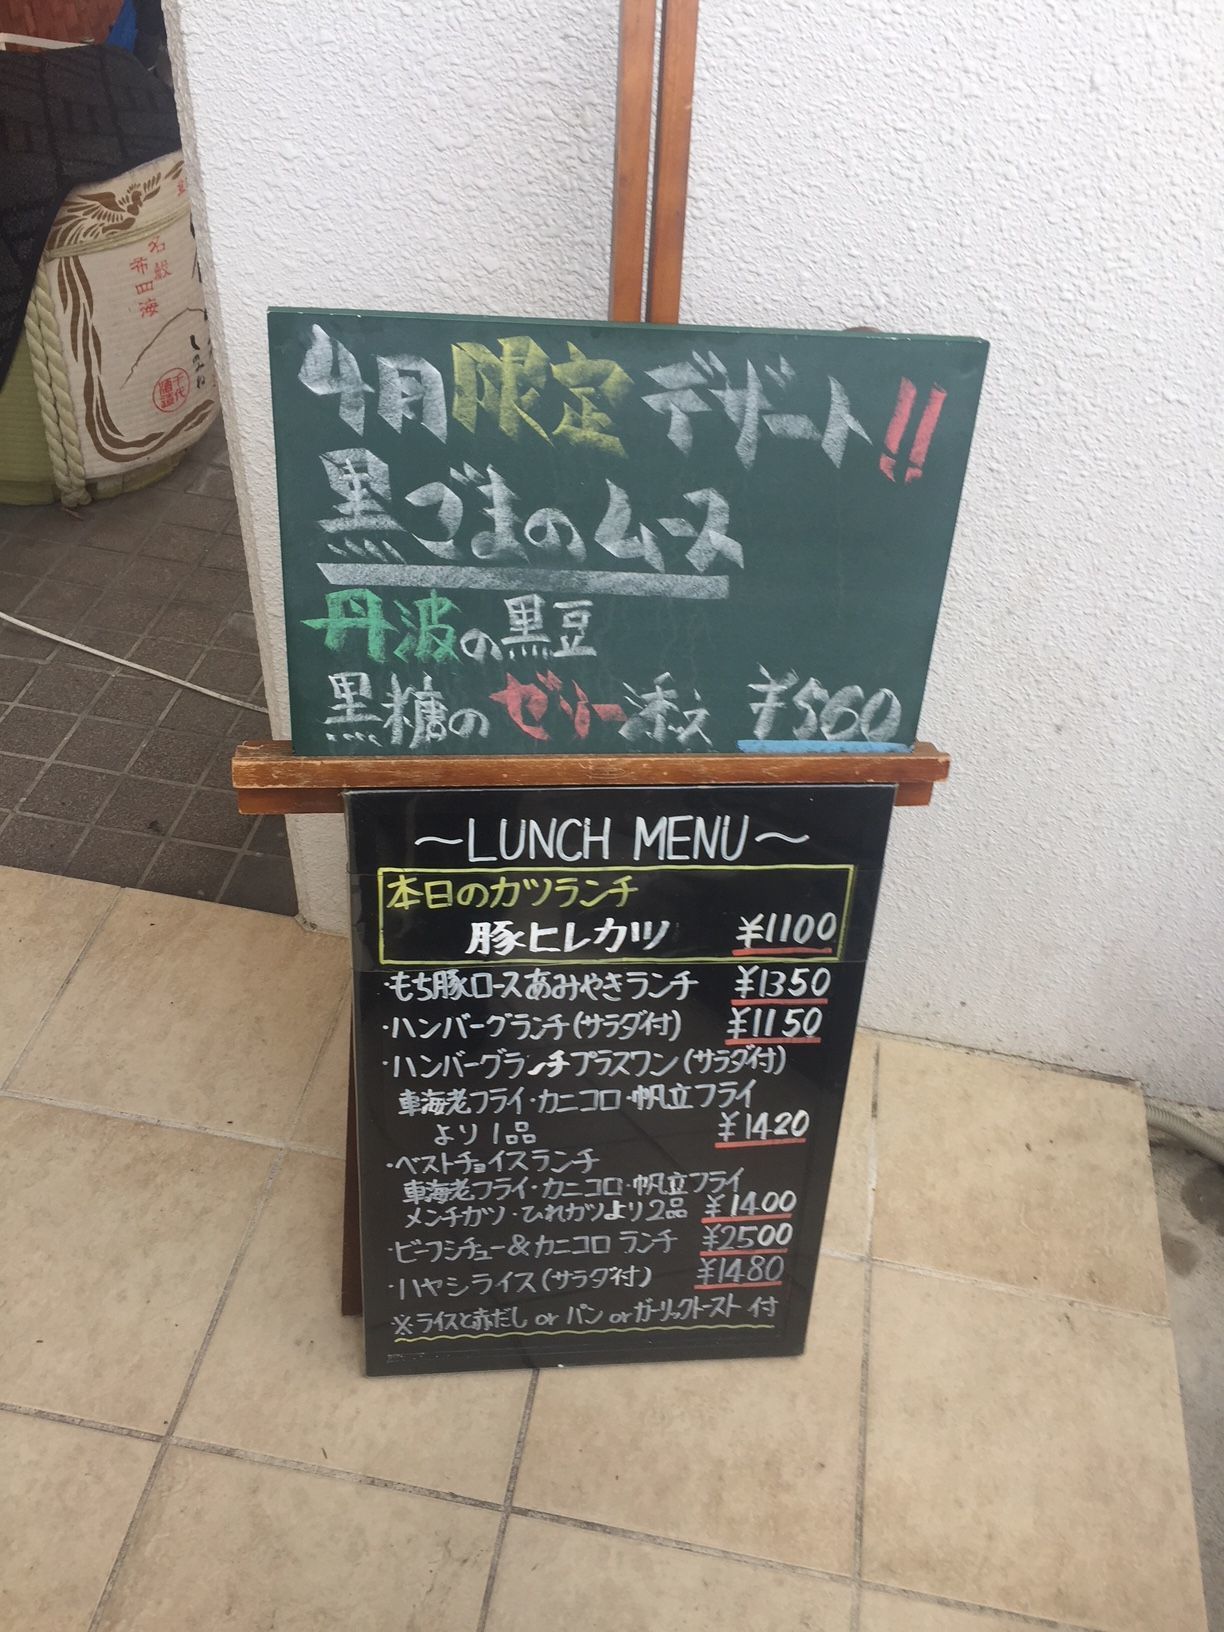 4月限定デザート!!
黒ごまのムース
丹波の黒豆
黒糖のゼリー添え ¥560
~LUNCH MENU~
本日のカツランチ
豚ヒレカツ ¥1100
・もち豚ロースあみやきランチ ¥1350
・ハンバーグランチ(サラダ付) ¥1150
・ハンバーグランチプラスワン(サラダ付)
車海老フライ・カニコロ・帆立フライ
より1品 ¥1420
・ベストチョイスランチ
車海老フライ・カニコロ・帆立フライ
メンチカツ・ひれカツより2品 ¥1400
・ビーフシチュー&カニコロランチ ¥2500
・ハヤシライス(サラダ付) ¥1480
※ライスと赤だし or パン or ガーリックトースト付
名殻
希四海
千代